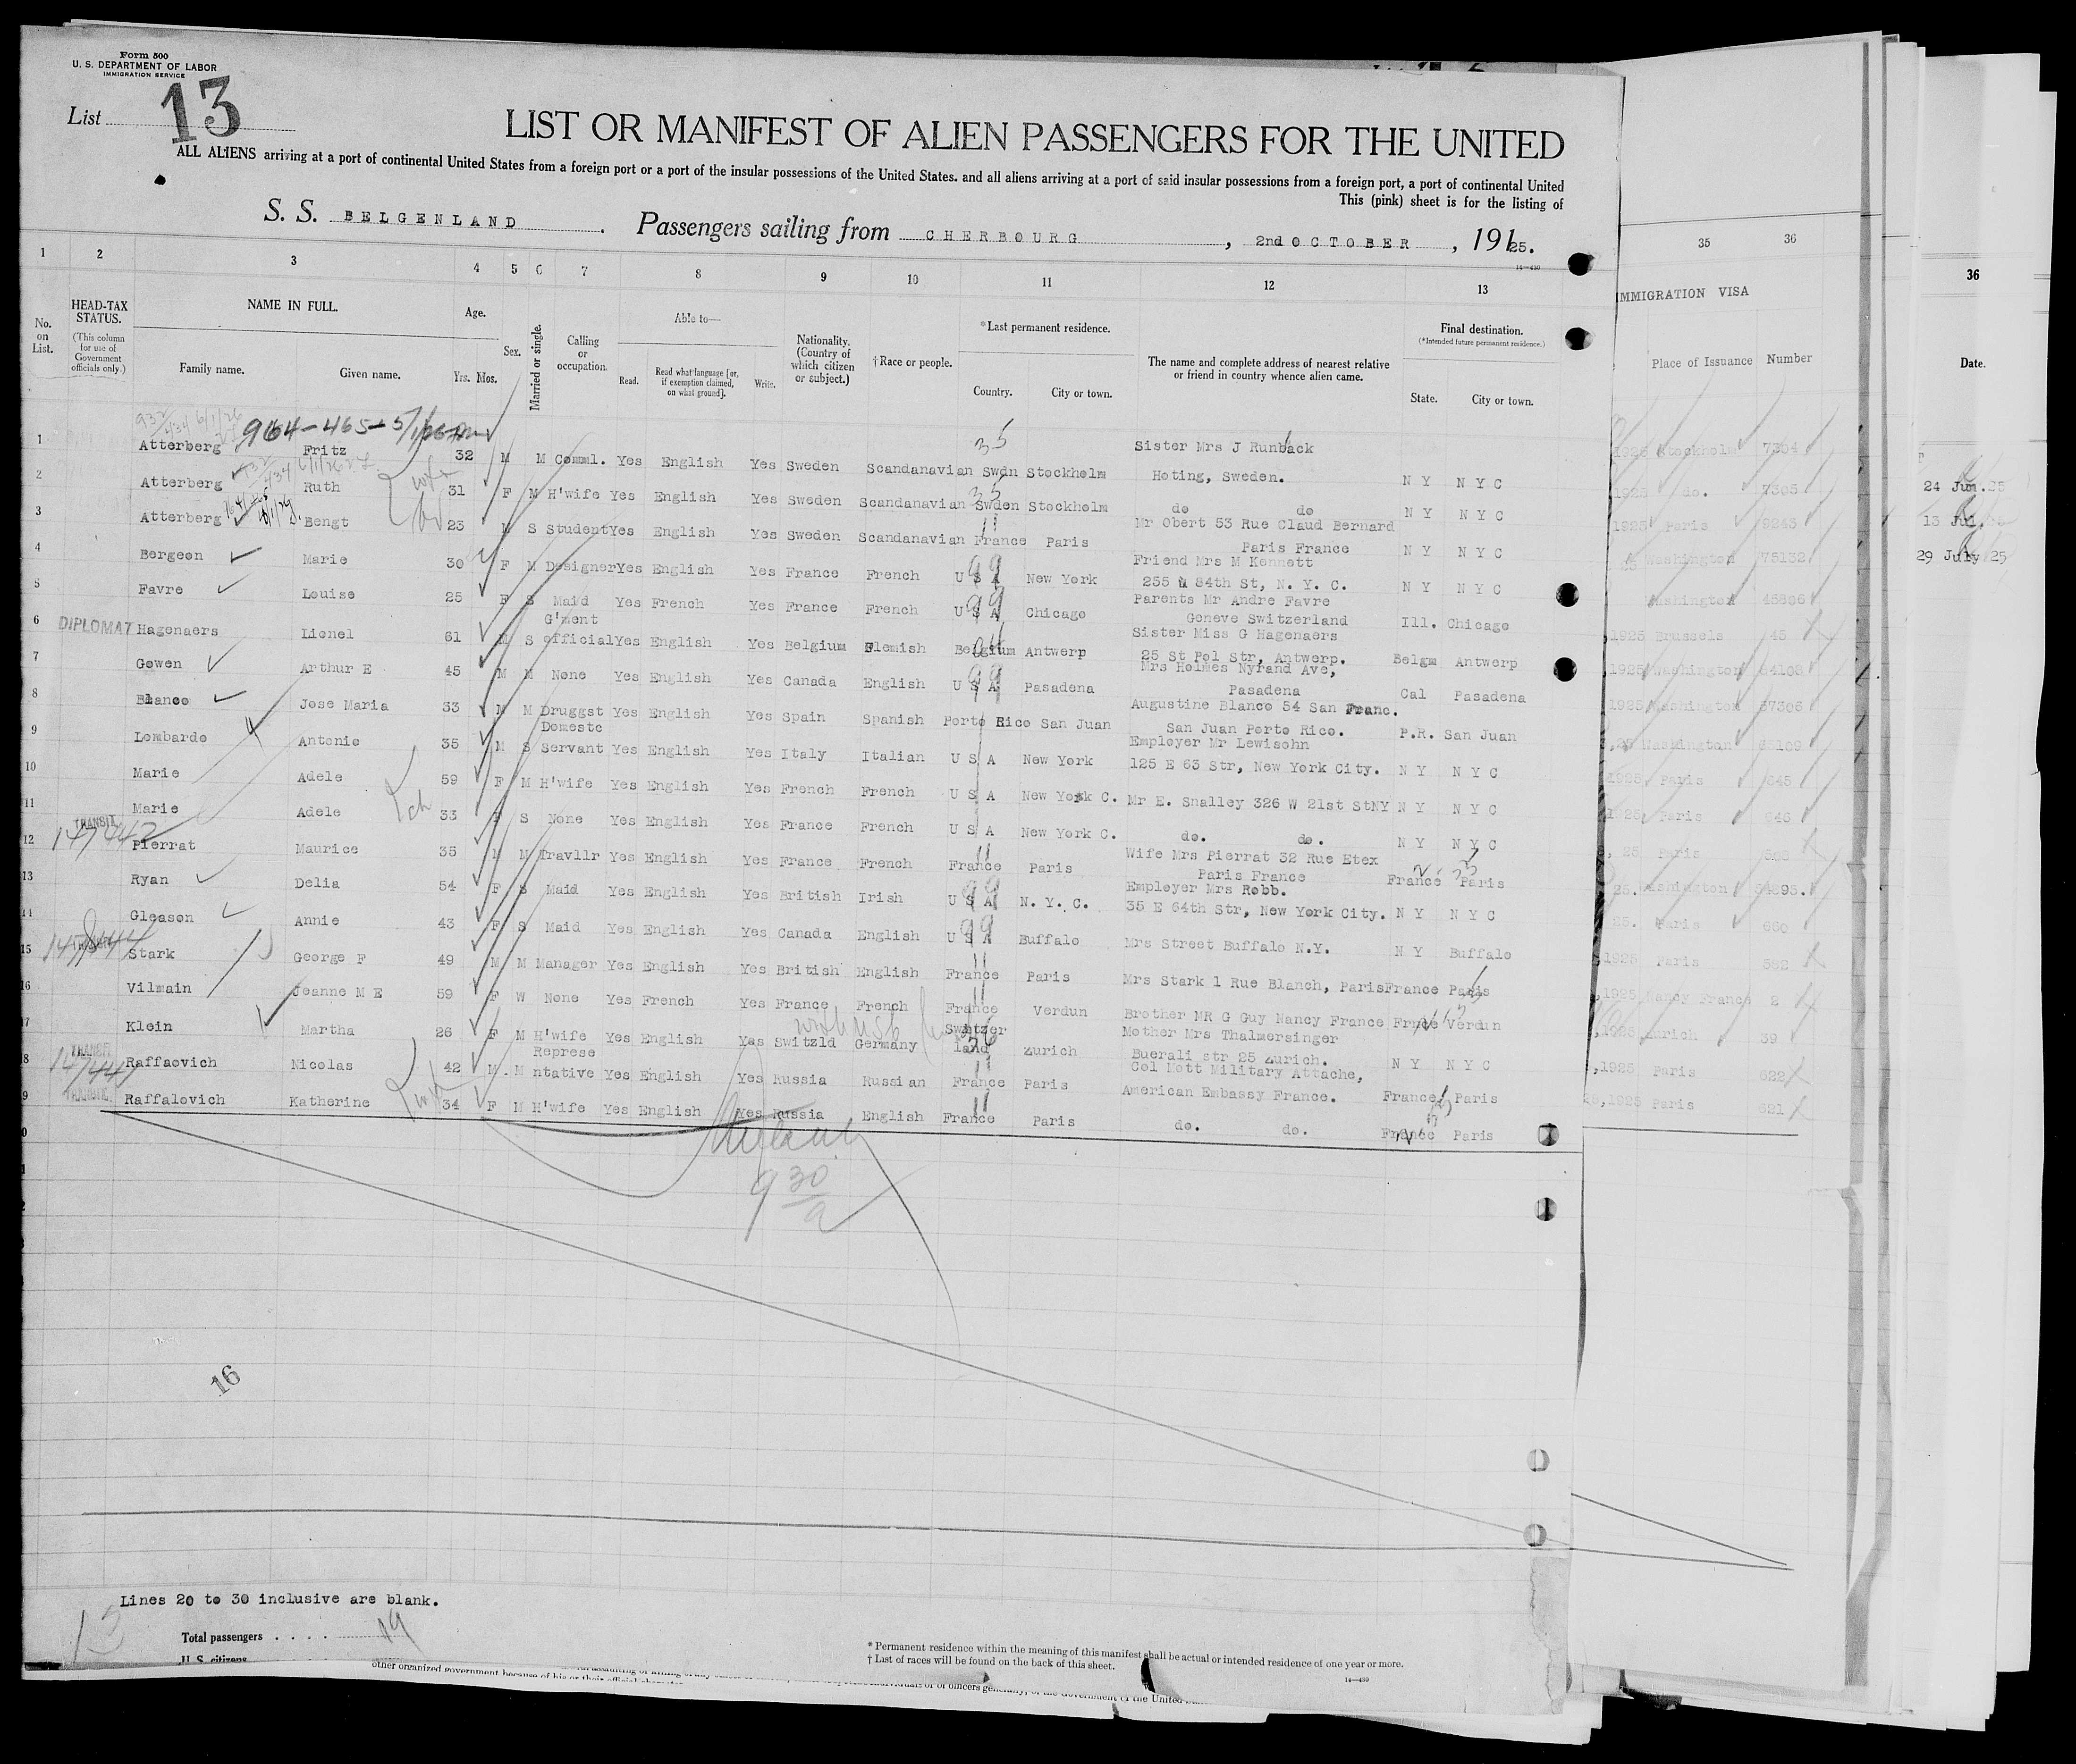 Form 500
U. S. DEPARTMENT OF LABOR
IMMIGRATION SERVICE
List 13
LIST OR MANIFEST OF ALIEN PASSENGERS FOR THE UNITED
ALL ALIENS arriving at a port of continental United States from a foreign port or a port of the insular possessions of the United States, and all aliens arriving at a port of said insular possessions from a foreign port, a port of continental United
This (pink) sheet is for the listing of
S. S. BELGENLAND. Passengers sailing from CHERBOURG, 2nd OCTOBER, 1925.
14—430
1 2 3 4 5 6 7 8 9 10 11 12 13 35 36 36
No. on List.
HEAD-TAX STATUS.
(This column for use of Government officials only.)
NAME IN FULL.
Family name. Given name.
Age.
Yrs. Mos.
Sex.
Married or single.
Calling or occupation.
Able to—
Read. Read what language [or, if exemption claimed, on what ground]. Write.
Nationality. (Country of which citizen or subject.)
†Race or people.
*Last permanent residence.
Country. City or town.
The name and complete address of nearest relative or friend in country whence alien came.
Final destination.
(*Intended future permanent residence.)
State. City or town.
IMMIGRATION VISA
Place of Issuance Number
Date.
964-465-5/1/26
1 Atterberg Fritz 32 M M Comml. Yes English Yes Sweden Scandanavian Swdn Stockholm Sister Mrs J Runback Hoting, Sweden. N Y N Y C 1925 Stockholm 7304
2 Atterberg Ruth 31 F M H'wife Yes English Yes Sweden Scandanavian Swden Stockholm do do N Y N Y C 1925 do. 7305
24 Jun. 25
3 Atterberg Bengt 23 M S Student Yes English Yes Sweden Scandanavian France Paris Mr Obert 53 Rue Claud Bernard Paris France N Y N Y C 1925 Paris 9245
13 Jul.
4 Bergeon Marie 30 F M Designer Yes English Yes France French U S A New York Friend Mrs M Kennett 255 W 84th St, N. Y. C. N Y N Y C Washington 75132
29 July 25
5 Favre Louise 25 F S Maid Yes French Yes France French U S A Chicago Parents Mr Andre Favre Geneve Switzerland Ill. Chicago Washington 45806
6 DIPLOMAT Hagenaers Lionel 61 M S G'ment official Yes English Yes Belgium Flemish Belgium Antwerp Sister Miss G Hagenaers 25 St Pol Str, Antwerp. Belgm Antwerp 1925 Brussels 45
7 Gowen Arthur E 45 M M None Yes English Yes Canada English U S A Pasadena Mrs Holmes Nyrand Ave, Pasadena Cal Pasadena 1925 Washington 64108
8 Blanco Jose Maria 33 M M Druggst Yes English Yes Spain Spanish Porto Rico San Juan Augustine Blanco 54 San Franc. San Juan Porto Rico. P.R. San Juan 1925 Washington 57306
9 Lombardo Antonio 35 M S Domestc Servant Yes English Yes Italy Italian U S A New York Employer Mr Lewisohn 125 E 63 Str, New York City. N Y N Y C 25 Washington
10 Marie Adele 59 F M H'wife Yes English Yes French French U S A New York C. Mr E. Snalley 326 W 21st St NY N Y N Y C 1925, Paris 645
11 Marie Adele 33 F S None Yes English Yes France French U S A New York C. do. do. N Y N Y C 1925 Paris 646
12 TRANSIT Pierrat Maurice 35 M M Travllr Yes English Yes France French France Paris Wife Mrs Pierrat 32 Rue Etex Paris France France Paris 25 Paris
13 Ryan Delia 54 F S Maid Yes English Yes British Irish U S A N. Y. C. Employer Mrs Robb. 35 E 64th Str, New York City. N Y N Y C 25. Washington 54895.
14 Gleason Annie 43 F S Maid Yes English Yes Canada English U S A Buffalo Mrs Street Buffalo N.Y. N Y Buffalo 25. Paris 660
15 Stark George F 49 M M Manager Yes English Yes British English France Paris Mrs Stark 1 Rue Blanch, Paris France Paris 1925 Paris 582
16 Vilmain Jeanne M E 59 F W None Yes French Yes France French France Verdun Brother MR G Guy Nancy France France Verdun ,1925 Nancy France 2
17 Klein Martha 26 F M H'wife Yes English Yes Switzld Germany Switzer land Zurich Mother Mrs Thalmersinger Buerali str 25 Zurich. N Y N Y C ,1925 Zurich 39
18 TRANSIT Raffaovich Nicolas 42 M M Represe ntative Yes English Yes Russia Russian France Paris Col Mott Military Attache, American Embassy France. France Paris ,1925 Paris 622
19 Raffalovich Katherine 34 F M H'wife Yes English Yes Russia English France Paris do. do. France Paris ,1925 Paris 621
9 30
16
Lines 20 to 30 inclusive are blank.
Total passengers . . . . 19
U. S. citizens
* Permanent residence within the meaning of this manifest shall be actual or intended residence of one year or more.
† List of races will be found on the back of this sheet.
14—430
other organized government because of his or their official character